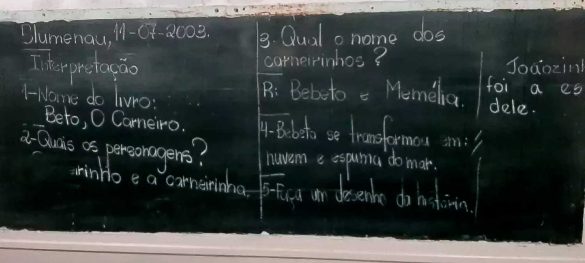 Blumenau, 11-07-2003.
Interpretação
1-Nome do livro:
Beto, O Carneiro.
2-Quais os personagens?
rinho e a carneirinha.
3-Qual o nome dos
carneirinhos?
R: Bebeto e Memélia.
4-Bebeto se transformou em:
nuvem e espuma do mar.
5-Faça um desenho da história.
Joãozinh
foi a es
dele.